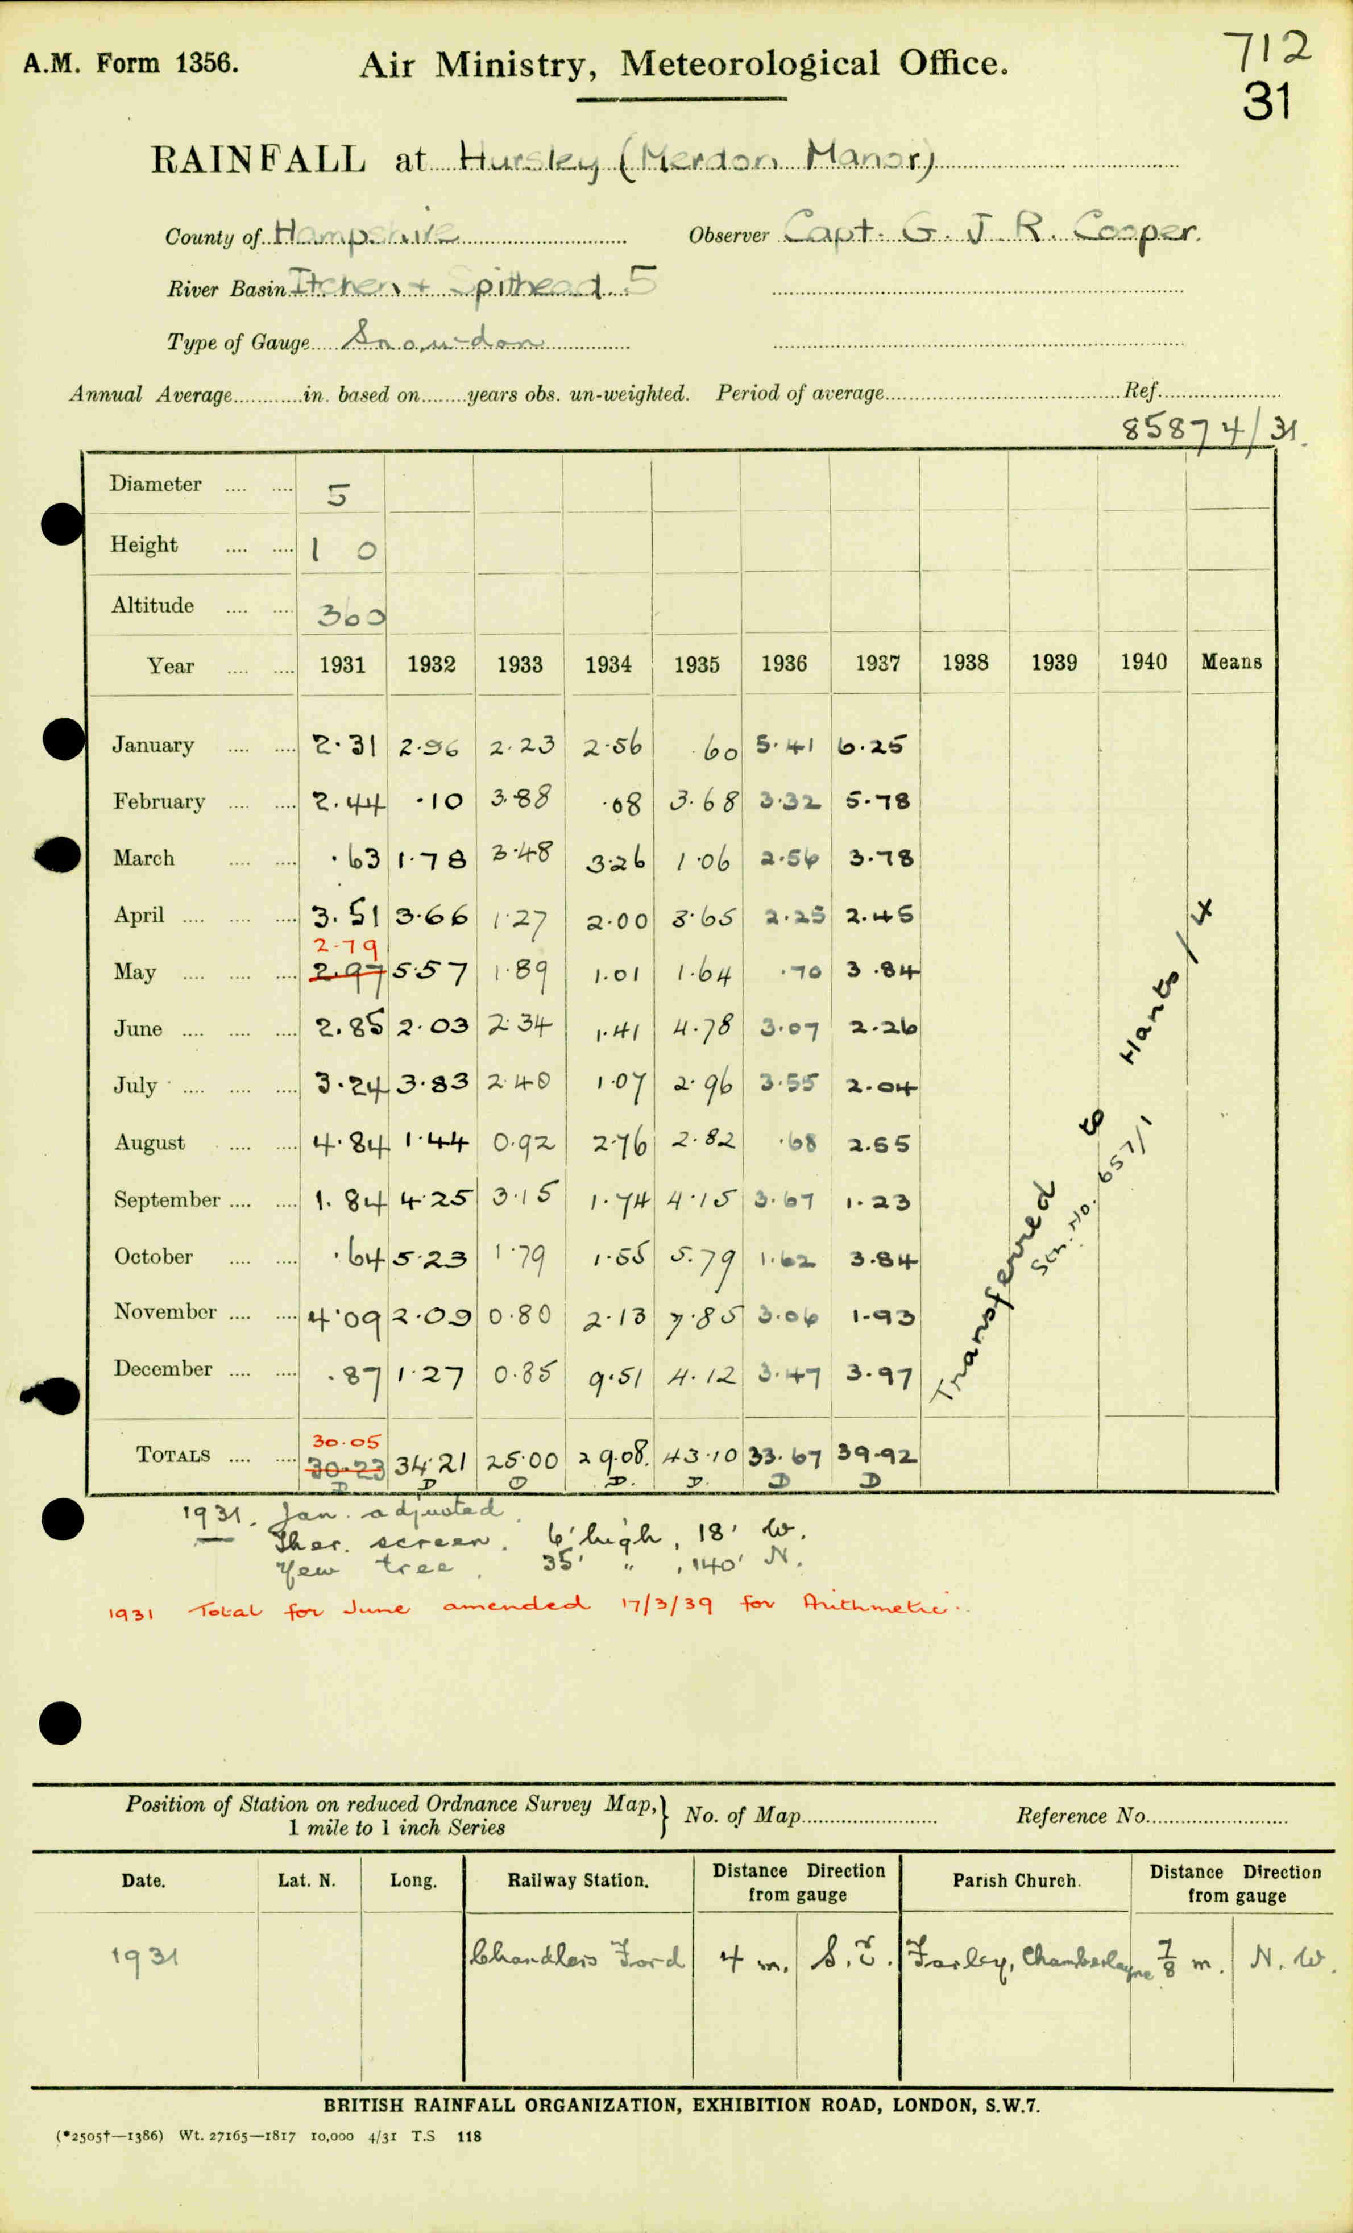 A.M. Form 1356.
Air Ministry, Meteorological Office.
712
31
RAINFALL at Hursley (Merdon Manor)
County of Hampshire Observer Capt. G. J. R. Cooper.
River Basin Itchen + Spithead 5
Type of Gauge Snowdon
Annual Average............in. based on........years obs. un-weighted. Period of average............ Ref............
85874/31.
Diameter .... .... 5
Height .... .... 1 0
Altitude .... .... 360
Year .... .... 1931 1932 1933 1934 1935 1936 1937 1938 1939 1940 Means
January .... .... 2.31 2.96 2.23 2.56 .60 5.41 6.25
February .... .... 2.44 .10 3.88 .08 3.68 3.32 5.78
March .... .... .63 1.78 3.48 3.26 1.06 2.56 3.78
April .... .... .... 3.51 3.66 1.27 2.00 3.65 2.25 2.45
2.79
May .... .... .... 2.97 5.57 1.89 1.01 1.64 .70 3.84
June .... .... .... 2.85 2.03 2.34 1.41 4.78 3.07 2.26
July .... .... .... 3.24 3.83 2.40 1.07 2.96 3.55 2.04
August .... .... 4.84 1.44 0.92 2.76 2.82 .68 2.55
September .... .... 1.84 4.25 3.15 1.74 4.15 3.67 1.23
October .... .... .64 5.23 1.79 1.55 5.79 1.62 3.84
November .... .... 4.09 2.09 0.80 2.13 7.85 3.06 1.93
December .... .... .87 1.27 0.85 9.51 4.12 3.47 3.97
Transferred to Hants/4
Ser. No. 657/1
30.05
TOTALS .... .... 30.23 34.21 25.00 29.08. 43.10 33.67 39.92
D D D D. D. D D
1931. Jan. adjusted.
Ther. screen. 6' high, 18' W.
Yew tree. 35' " , 140' N.
1931 Total for June amended 17/3/39 for Arithmetic.
Position of Station on reduced Ordnance Survey Map, } No. of Map............ Reference No............
1 mile to 1 inch Series
Date. Lat. N. Long. Railway Station. Distance Direction from gauge Parish Church. Distance Direction from gauge
1931 Chandlers Ford 4 m. S.E. Farley, Chamberlayne 7/8 m. N.W.
BRITISH RAINFALL ORGANIZATION, EXHIBITION ROAD, LONDON, S.W.7.
(*2505†—1386) Wt. 27165—1817 10,000 4/31 T.S 118